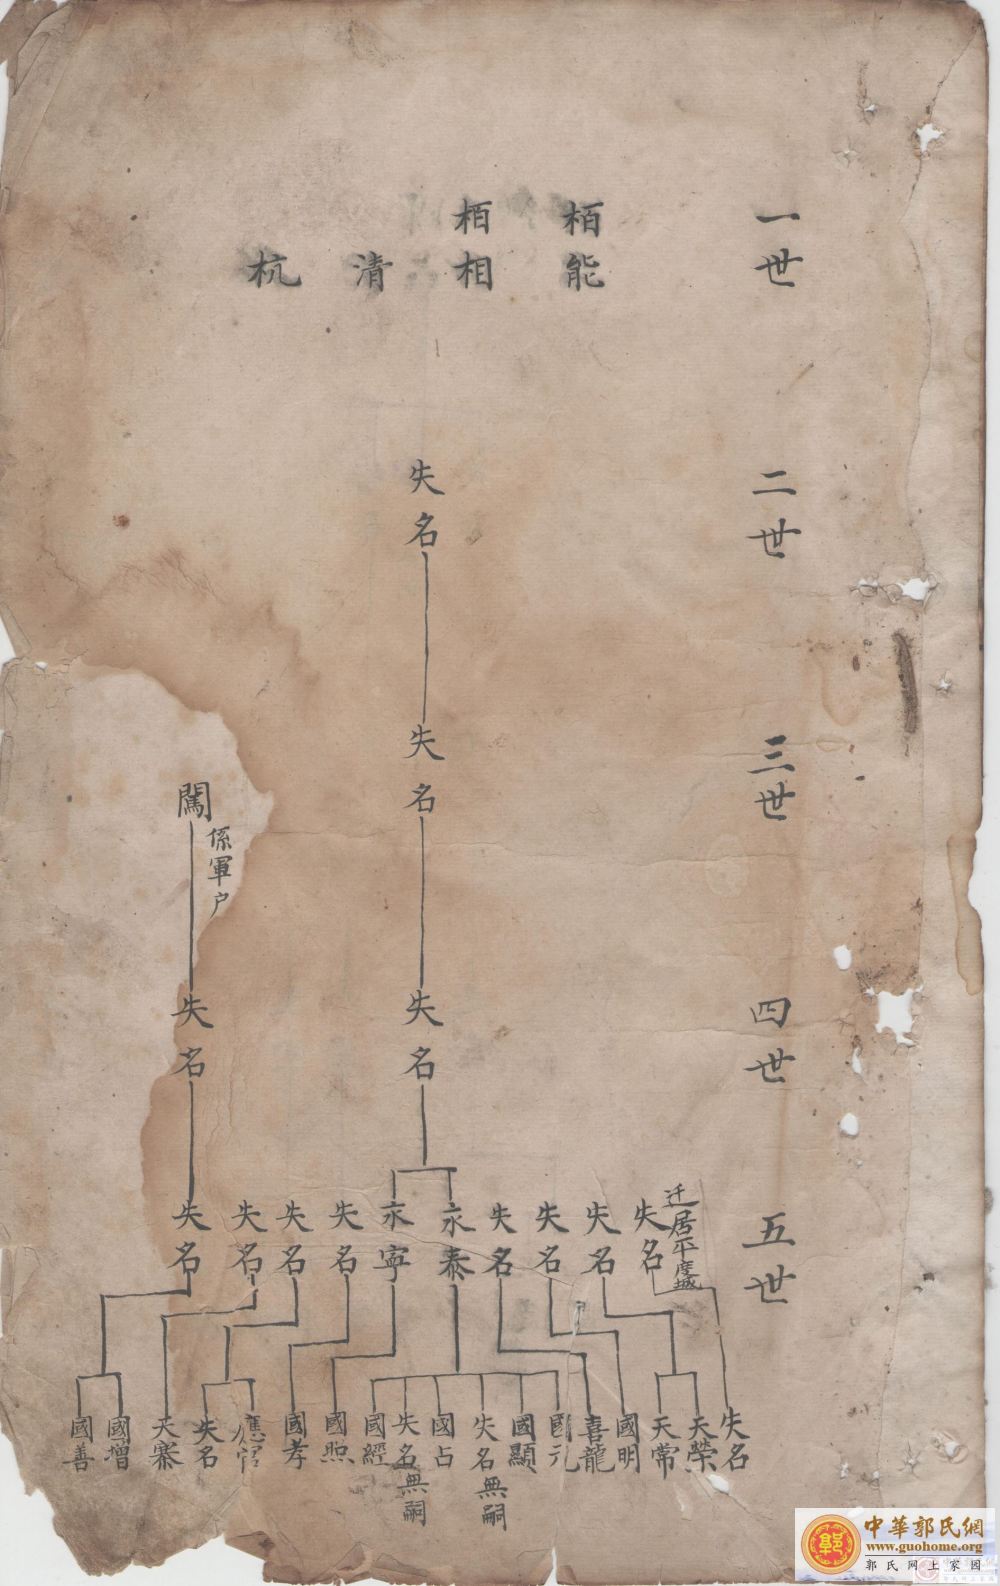 一世
栢能
栢相
清
杭
二世
失名
三世
失名
闖
係軍户
四世
失名
失名
五世
失名
迁居平度城
失名
失名
失名
永泰
永寧
失名
失名
失名
失名
失名
天榮
天常
國明
喜龍
國孔
國顯
失名無嗣
國占
失名無嗣
國經
國照
國孝
應官
失名
天寨
國增
國善
中華郭氏網
www.guohome.org
郭氏网上家园